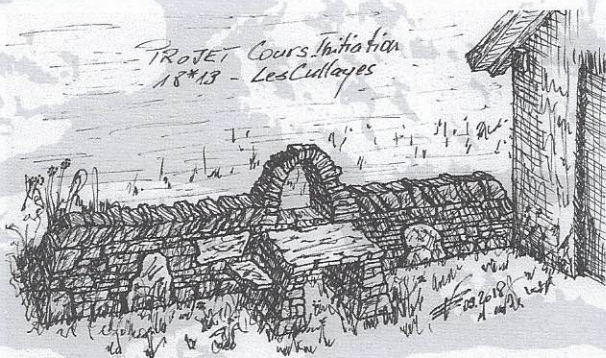 PROJET Cours Initiation
18*13 - Les Cullayes
03.2018